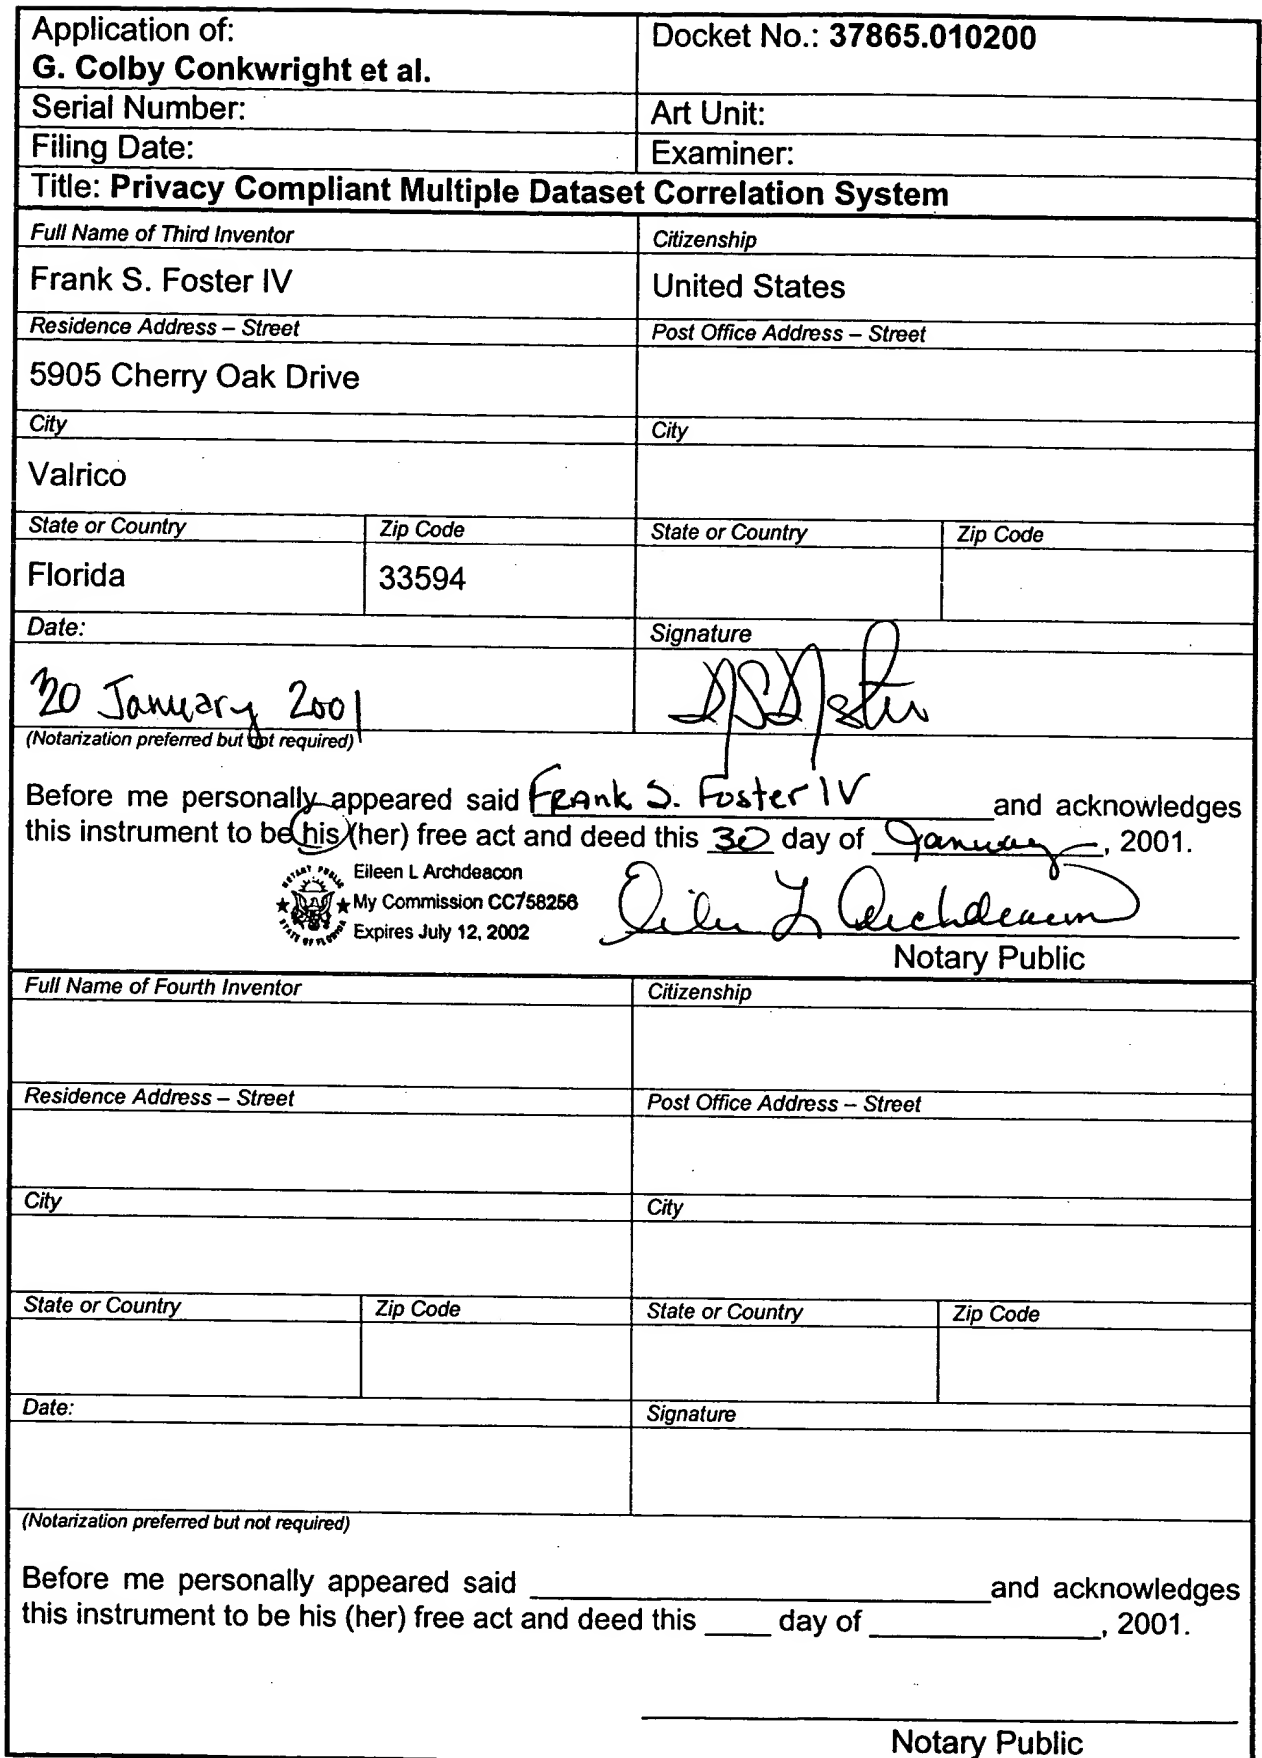 Application of:
G. Colby Conkwright et al.
Docket No.: 37865.010200
Serial Number:
Art Unit:
Filing Date:
Examiner:
Title: Privacy Compliant Multiple Dataset Correlation System
Full Name of Third Inventor
Citizenship
Frank S. Foster IV
United States
Residence Address – Street
Post Office Address – Street
5905 Cherry Oak Drive
City
City
Valrico
State or Country
Zip Code
State or Country
Zip Code
Florida
33594
Date:
Signature
January 2001
(Notarization preferred but not required)
Before me personally appeared said Frank S. Foster IV and acknowledges
this instrument to be his (her) free act and deed this 30 day of January, 2001.
NOTARY PUBLIC
STATE OF FLORIDA
Eileen L Archdeacon
My Commission CC758256
Expires July 12, 2002
Eileen L Archdeacon
Notary Public
Full Name of Fourth Inventor
Citizenship
Residence Address – Street
Post Office Address – Street
City
City
State or Country
Zip Code
State or Country
Zip Code
Date:
Signature
(Notarization preferred but not required)
Before me personally appeared said ____ and acknowledges
this instrument to be his (her) free act and deed this ____ day of ____, 2001.
Notary Public